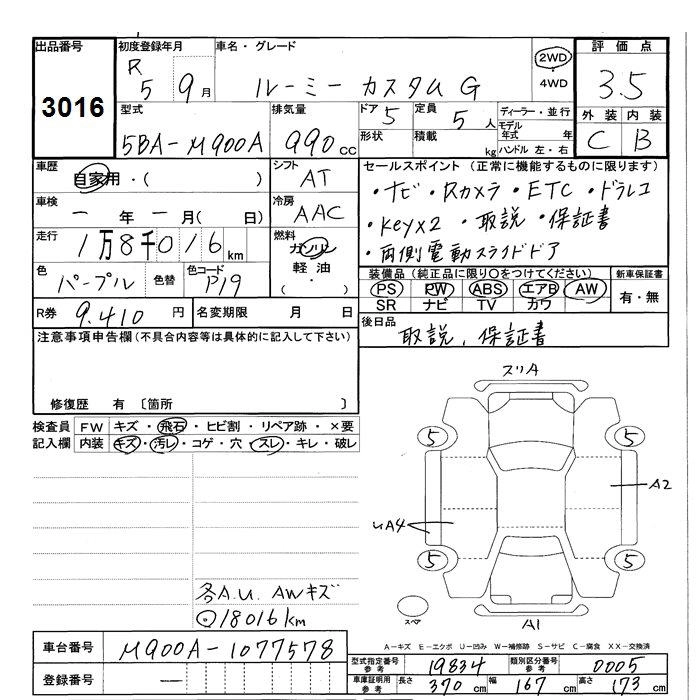 出品番号
3016
初度登録年月
R 5 9月
車名・グレード
ルーミー カスタムG
2WD
・
4WD
評価点
3.5
外装 内装
C B
型式
5BA-M900A
排気量
990cc
ドア 5
定員 5人
形状
積載 kg
ディーラー・並行
モデル年式 年
ハンドル 左・右
車歴
自家用・( )
シフト
AT
車検
一年一月( 日)
冷房
AAC
走行
1万8千016km
燃料
ガソリン
軽油
( ・ )
色
パープル
色替
色コード
P19
R券 9.410円
名変期限 月 日
セールスポイント (正常に機能するものに限ります)
・ナビ・Rカメラ・ETC・ドラレコ
・Keyx2 ・取説・保証書
・両側電動スライドドア
装備品 (純正品に限り○をつけてください)
PS PW ABS エアB AW
SR ナビ TV カワ
新車保証書
有・無
後日品
取説、保証書
注意事項申告欄(不具合内容等は具体的に記入して下さい)
修復歴 有 〔箇所 〕
検査員記入欄
FW キズ・飛石・ヒビ割・リペア跡・×要
内装 キズ・汚レ・コゲ・穴・スレ・キレ・破レ
各A.U. AWキズ
◎18016km
スリA
5
5
A2
UA4
5
5
スペア
A1
A-キズ E-エクボ U-凹み W-補修跡 S-サビ C-腐食 XX-交換済
車台番号
M900A-1077578
登録番号
一
型式指定番号参考
19834
類別区分番号参考
0005
車庫証明用参考
長さ 370cm
幅 167cm
高さ 173cm